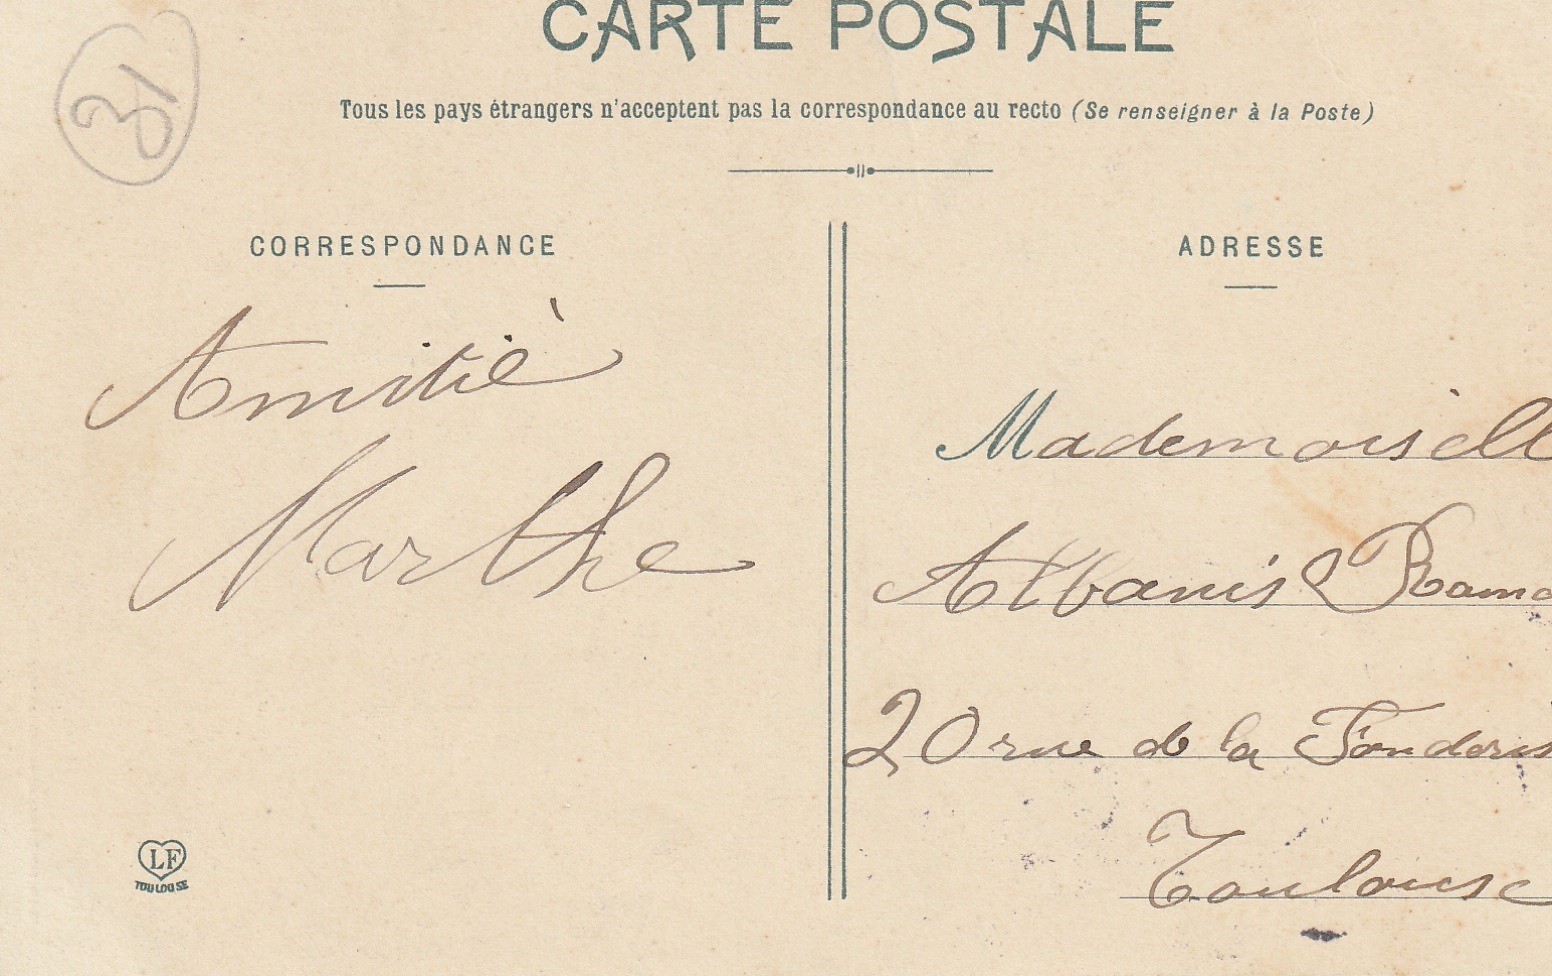 CARTE POSTALE
Tous les pays étrangers n'acceptent pas la correspondance au recto (Se renseigner à la Poste)
31
CORRESPONDANCE
Amitiè
Marthe
LF
TOULOUSE
ADRESSE
Mademoisell
Albanis Rama
20 rue de la Fonderi
Toulouse